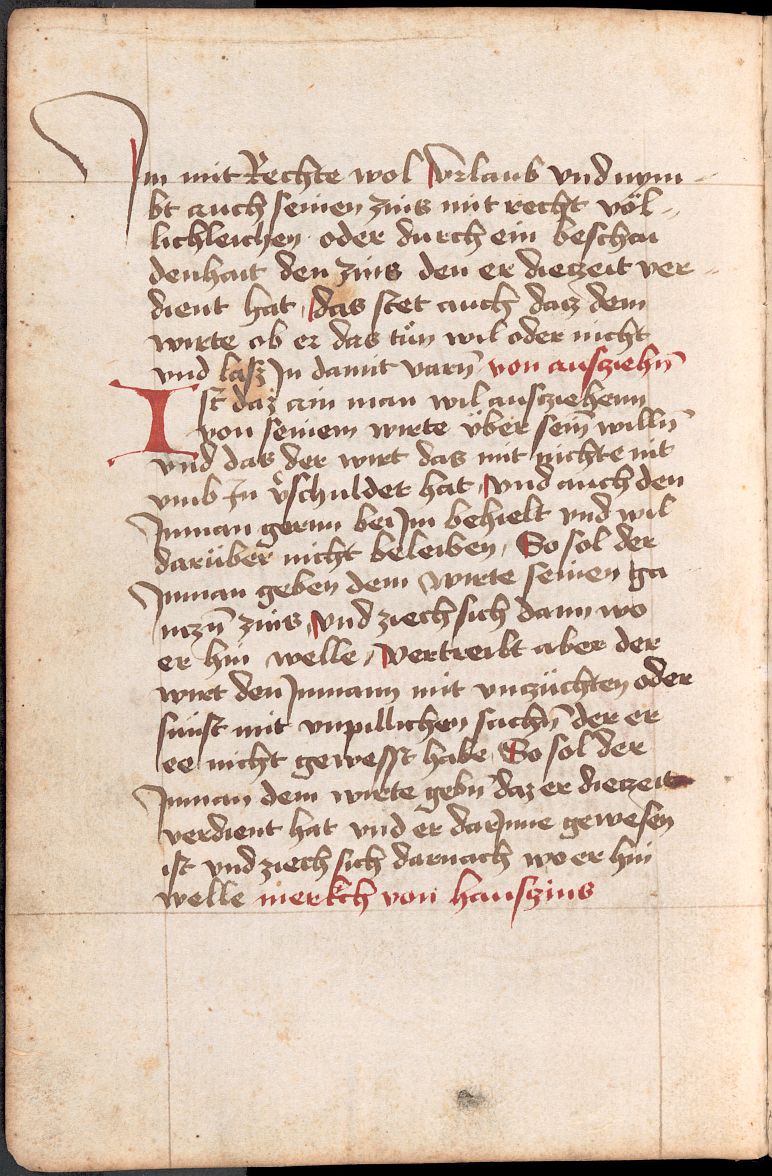 Im mit Rechte wol vrlaub vnd nym-
bt auch seinen zins mit recht völ-
lichleichen oder durch ein beschai
denhait den zins den er die zeit ver-
dient hat, das stet auch daz dem
wirte ob er das tün wil oder nicht
vnd lasz In damit varn̄ von ausziehn̄
Ist daz ain man wil ausziehenn
von seinem wirte über sein̄ willn̄
vnd das der wirt das mit nichte nit
vmb In v̄schuldet hat, vnd auch den
Inman gernn bei Im behielt vnd wil
darüber nicht beleiben, So sol der
Inman geben dem wirte seinen ga
nczn̄ zins, vnd ziech sich dann wo
er hin welle, vertreibt aber der
wirt den Inmann mit vnczüchten oder
sünst mit vnpillichen sachn̄ der er
ee nicht gewesst habe So sol der
Inman dem wirte gebn̄ daz er die zeit
verdient hat vnd er darInne gewesen
ist vnd ziech sich darnach wo er hin
welle merkch von hauszins